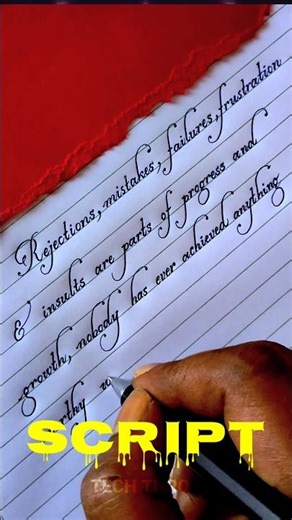 Rejections, mistakes, failures, frustration
& insults are parts of progress and
growth, nobody has ever achieved anything
SCRIPT